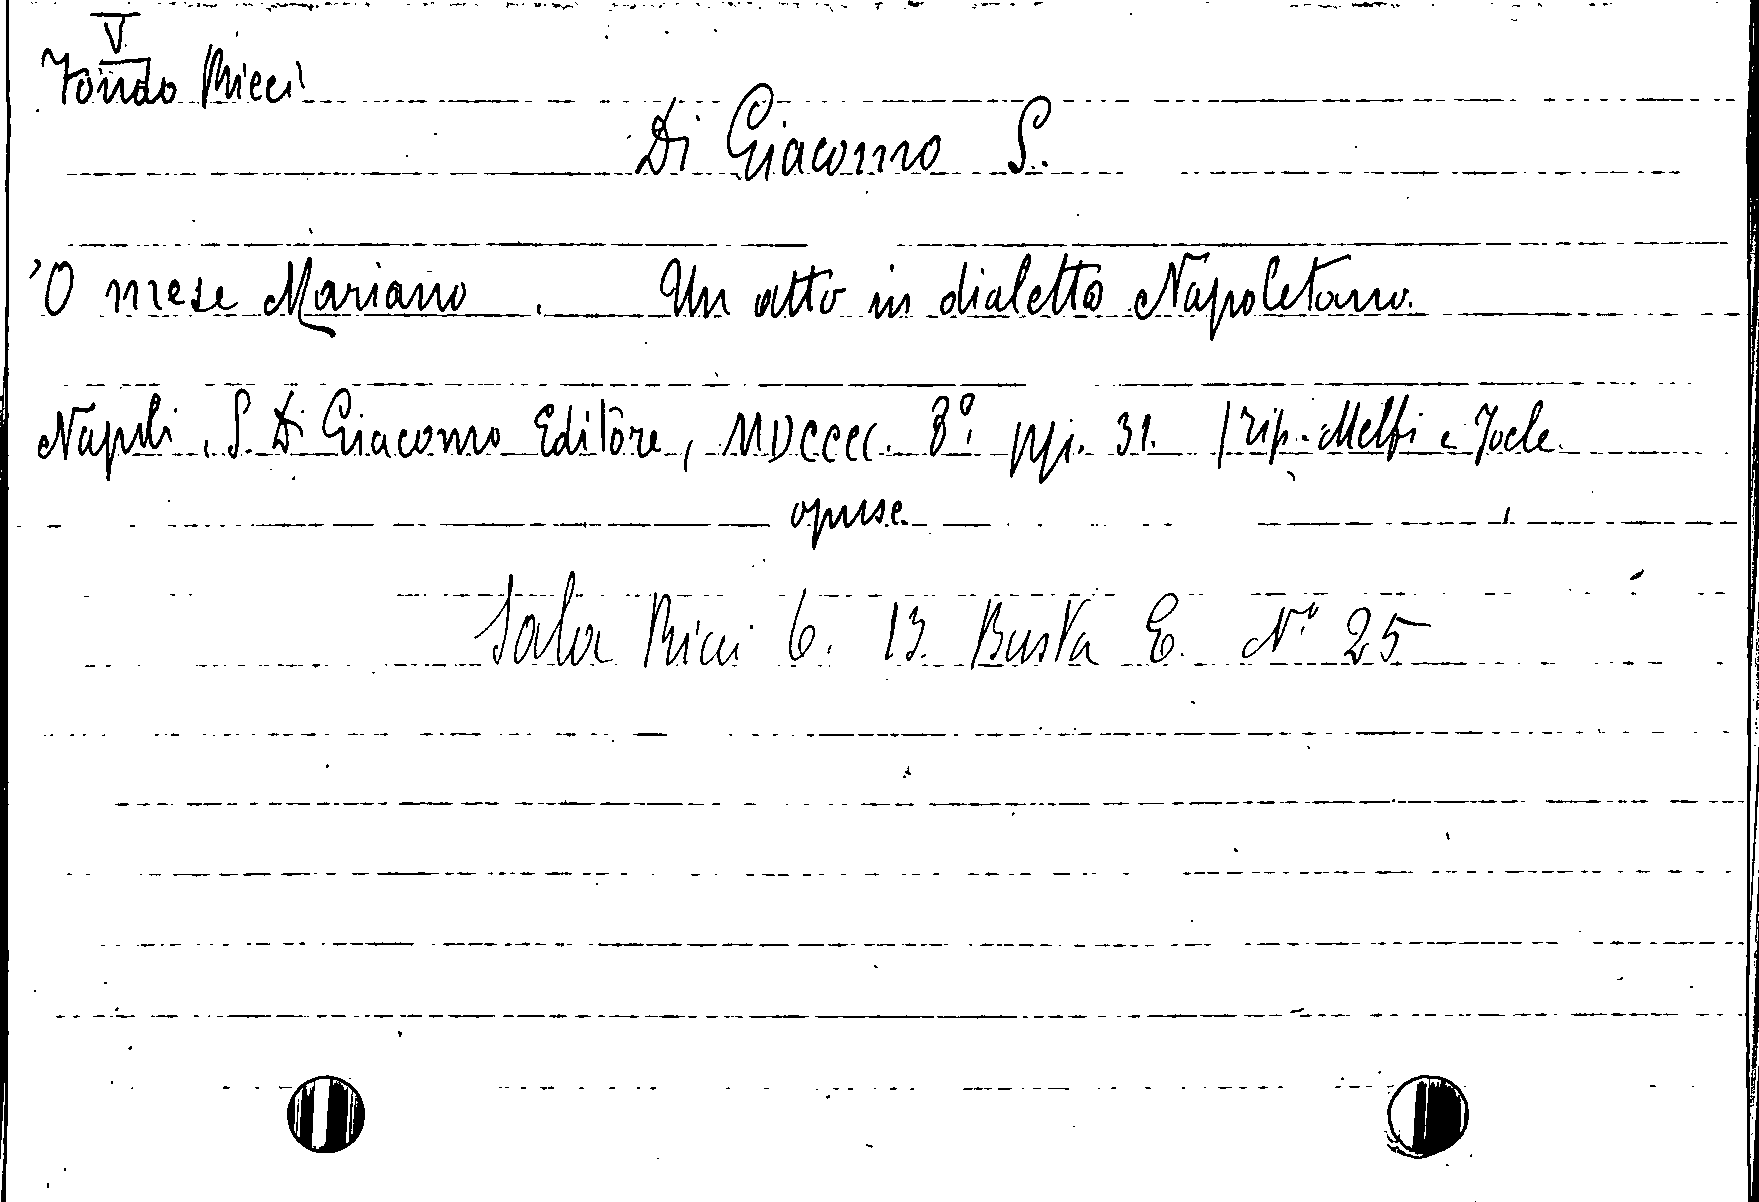 V
Fondo Ricci
Di Giacomo S.
'O mese Mariano. Un atto in dialetto Napoletano.
Napoli, S. Di Giacomo Editore, MDCCCC. 8º. pp. 31. Tip. Melfi e Joele.
opusc.
Sala Ricci 6. 13. Busta E. Nº 25